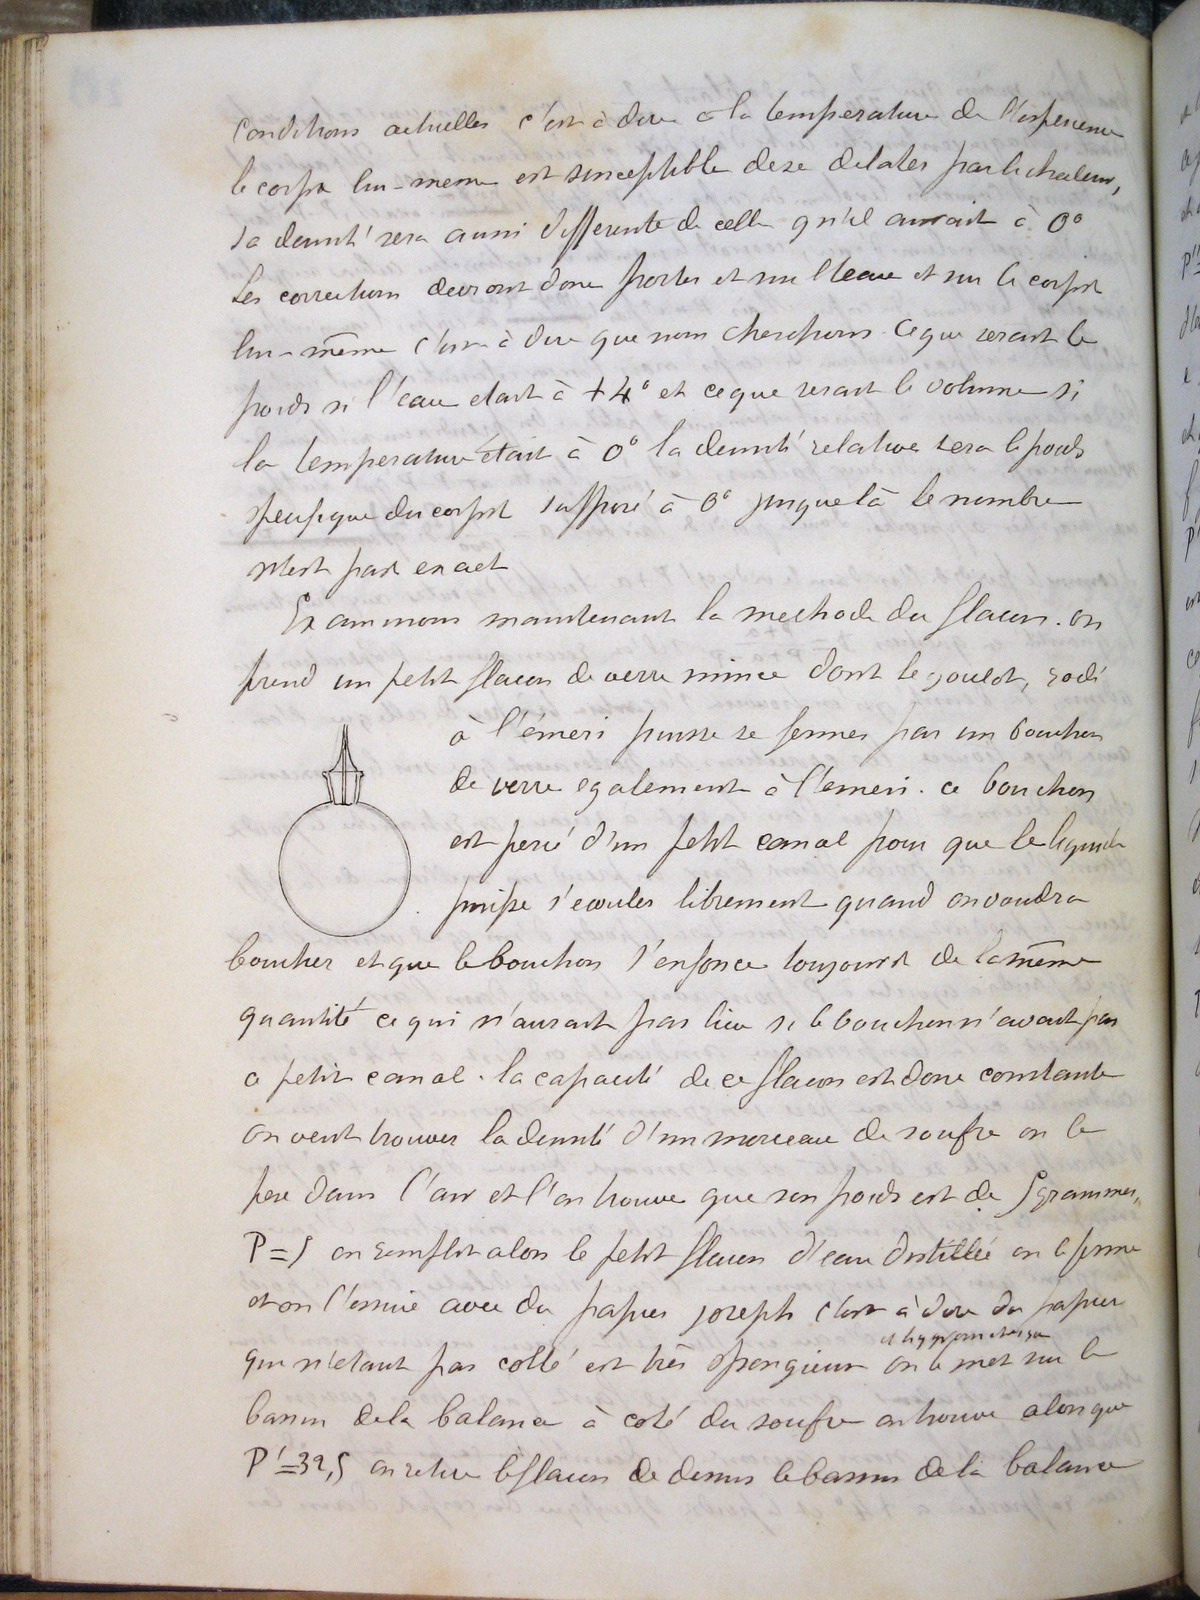 conditions actuelles c'est à dire à la temperature de l'experience
le corps lui-meme est susceptible de se dilater par la chaleur,
sa densité sera aussi differente de celle qu'il aurait à 0°
Les corrections devront donc porter et sur l'eau et sur le corps
lui-même c'est à dire que nous cherchons ce que serait le
poids si l'eau etait à +4° et ce que serait le volume si
la temperature était à 0° la densité relative sera le poids
specifique du corps supposé à 0° jusque là le nombre
n'est pas exact
Examinons maintenant la methode du flacon. on
prend un petit flacon de verre mince dont le goulot, rodé
à l'émeri puisse se fermer par un bouchon
de verre egalement à l'emeri. ce bouchon
est percé d'un petit canal pour que le liquide
puisse s'ecouler librement quand on voudra
boucher et que le bouchon s'enfonce toujours de la même
quantité ce qui n'aurait pas lieu si le bouchon n'avait pas
ce petit canal. la capacité de ce flacon est donc constante
on veut trouver la densité d'un morceau de soufre on le
pese dans l'air et l'on trouve que son poids est de 5 grammes,
P=5 on remplit alors le petit flacon d'eau distillée on le ferme
et on l'essuie avec du papier joseph c'est à dire du papier
qui n'etant pas collé est très spongieux et hygrometrique on le met sur le
bassin de la balance à coté du soufre on trouve alors que
P'=32,5 on retire le flacon de dessus le bassin de la balance